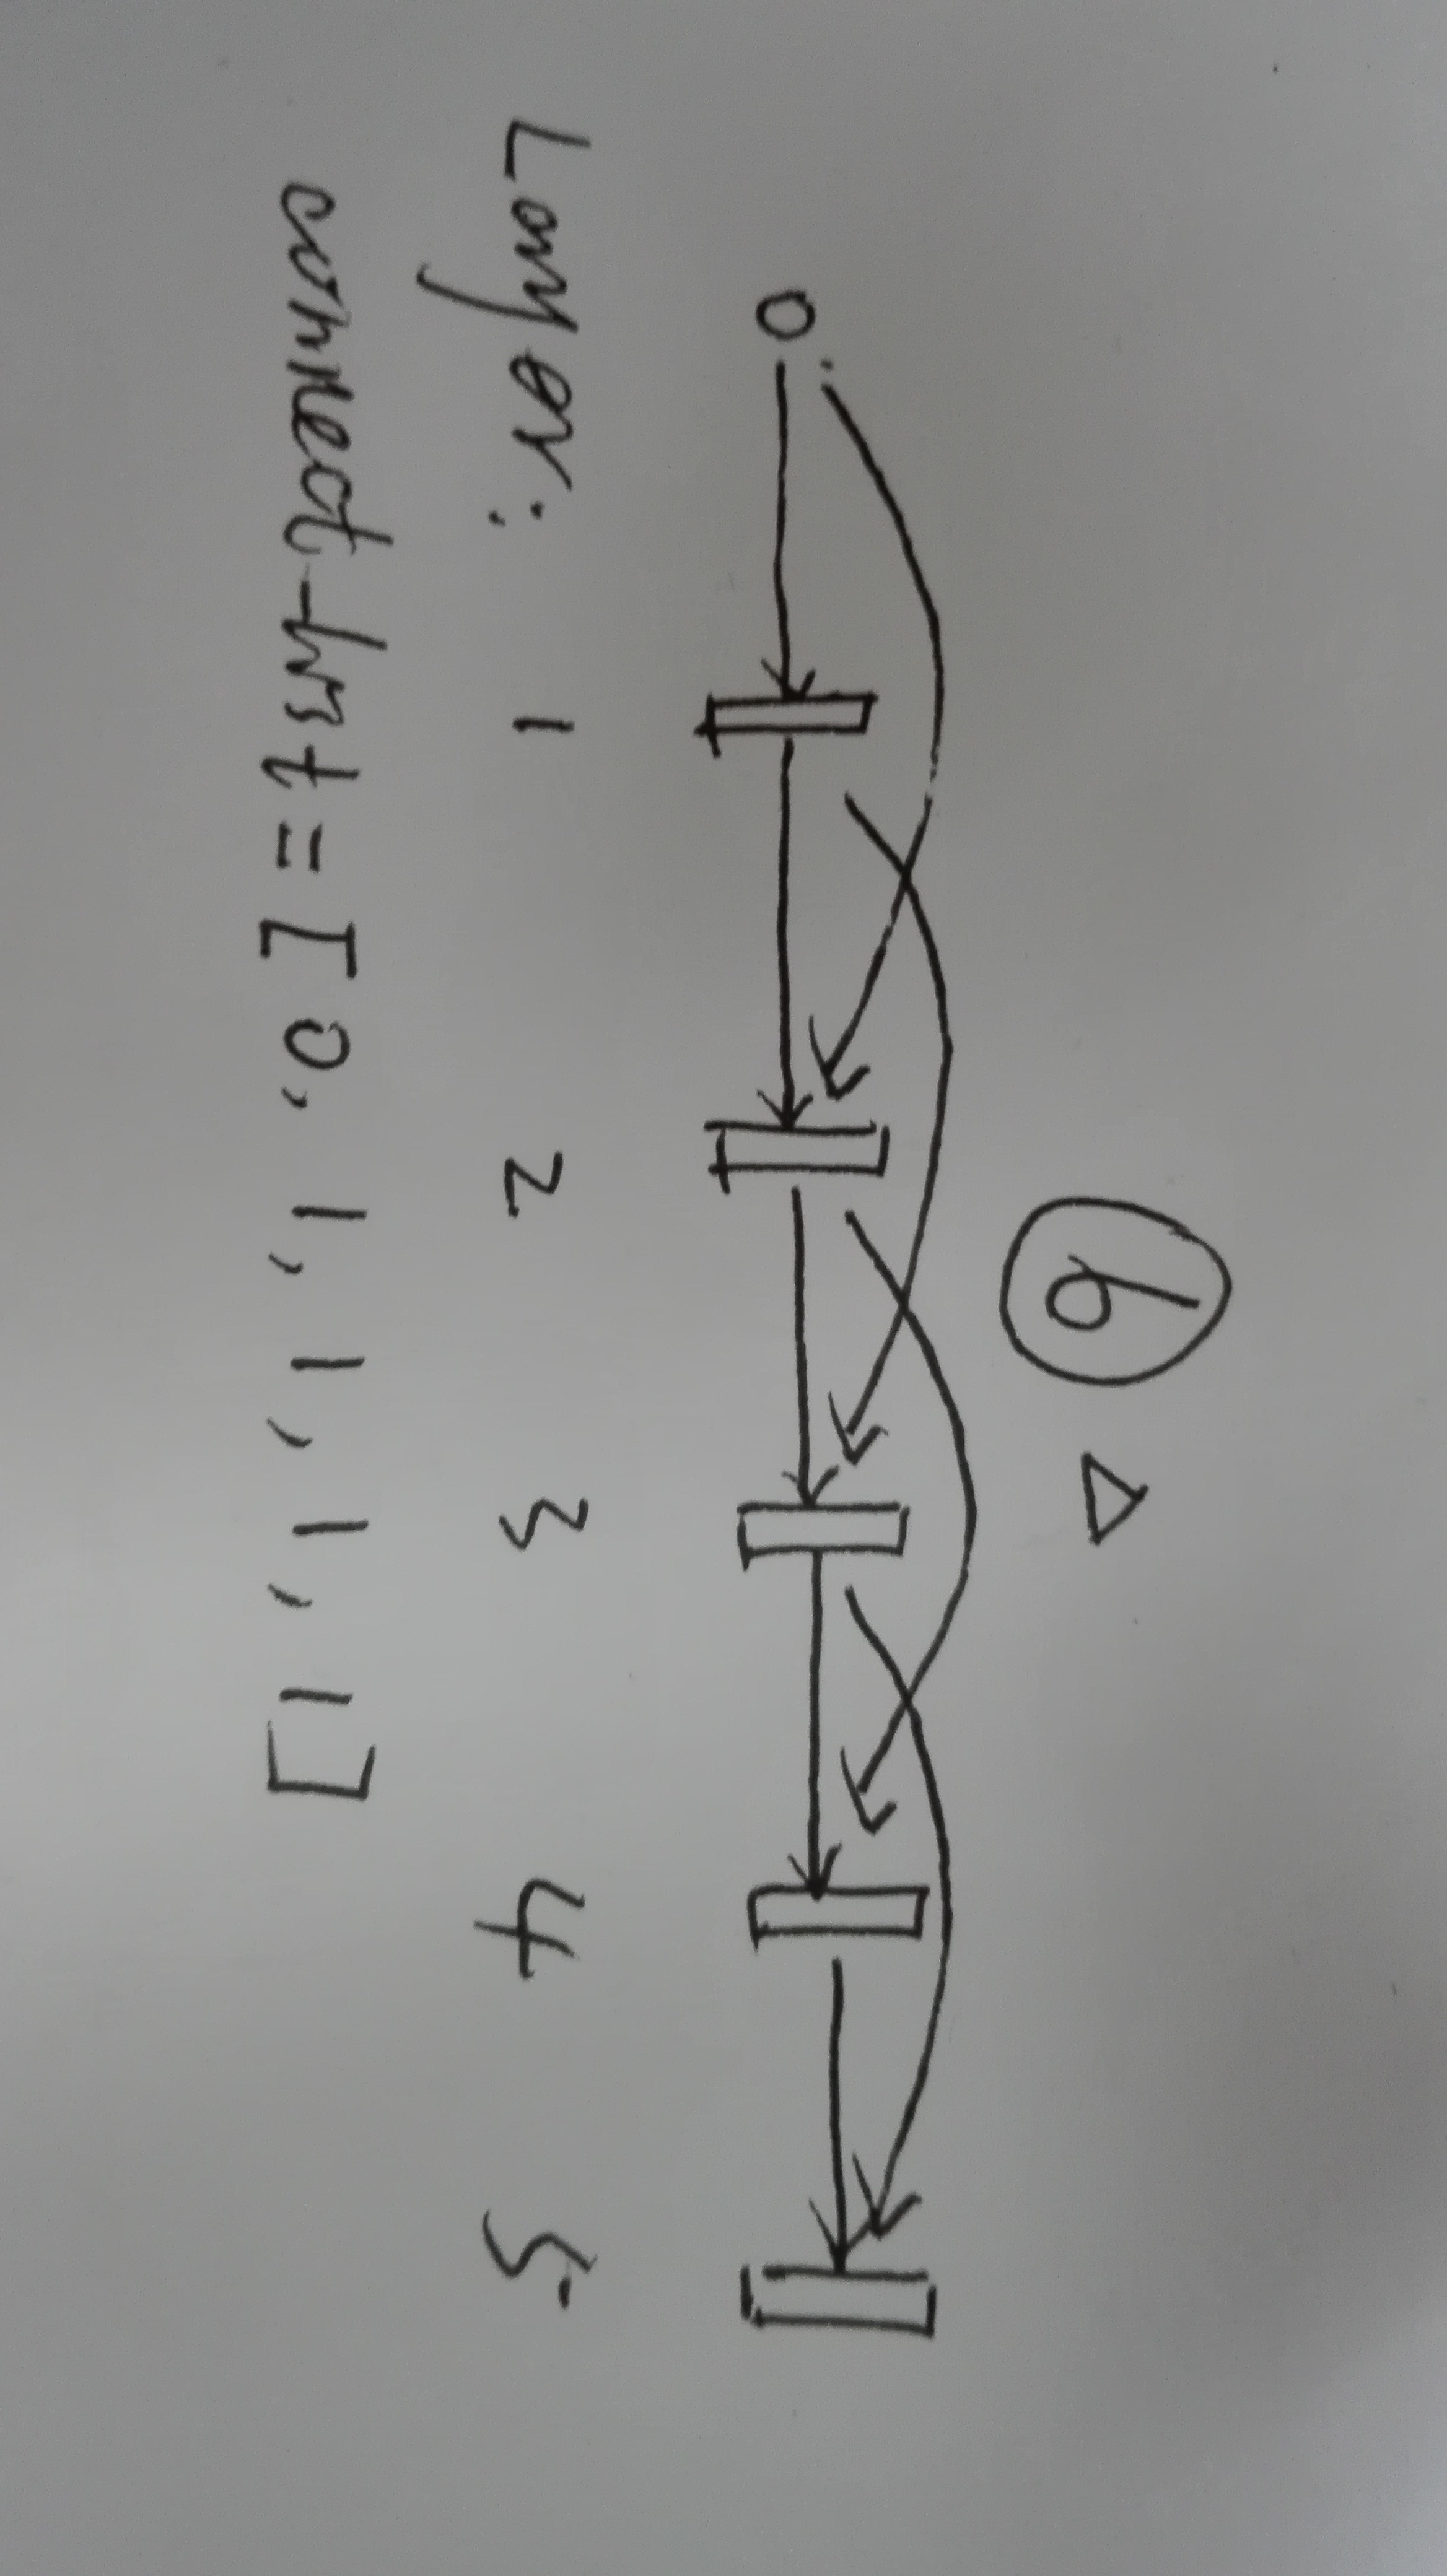 ⑥ △
0
Layer: 1 2 3 4 5
connect-list = [0, 1, 1, 1, 1]